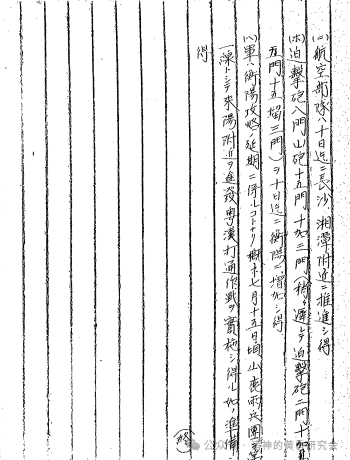 (ニ)航空部隊ハ十日迄ニ長沙、湘潭附近ニ推進シ得
(ホ)迫撃砲八門山砲十五門、十加三門(稍々遅レテ迫撃砲二門十加
五門十五榴三門)ヲ十日迄ニ衡陽ニ増加シ得
(ヘ)軍ハ衡陽攻略ノ延期ニ係ルコトナク概ネ七月十五日頃山 兵団ヲ
一線トシテ来陽附近ヲ進発粤漢打通作戦ヲ実施シ得ル如ク準備
シ得
(終)
公众号 神的 研究会